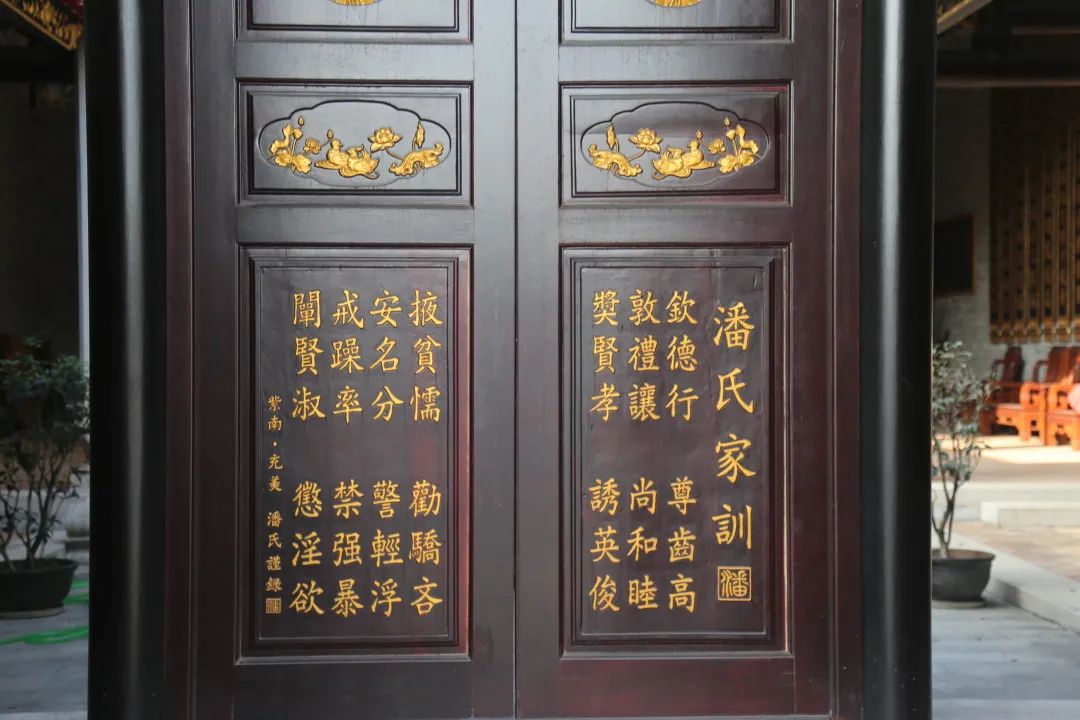 潘氏家訓
潘
欽德行 尊齒高
敦禮讓 尚和睦
獎賢孝 誘英俊
掖貧懦 勸驕吝
安名分 警輕浮
戒躁率 禁强暴
闡賢淑 懲淫欲
紫南·充美 潘氏謹錄